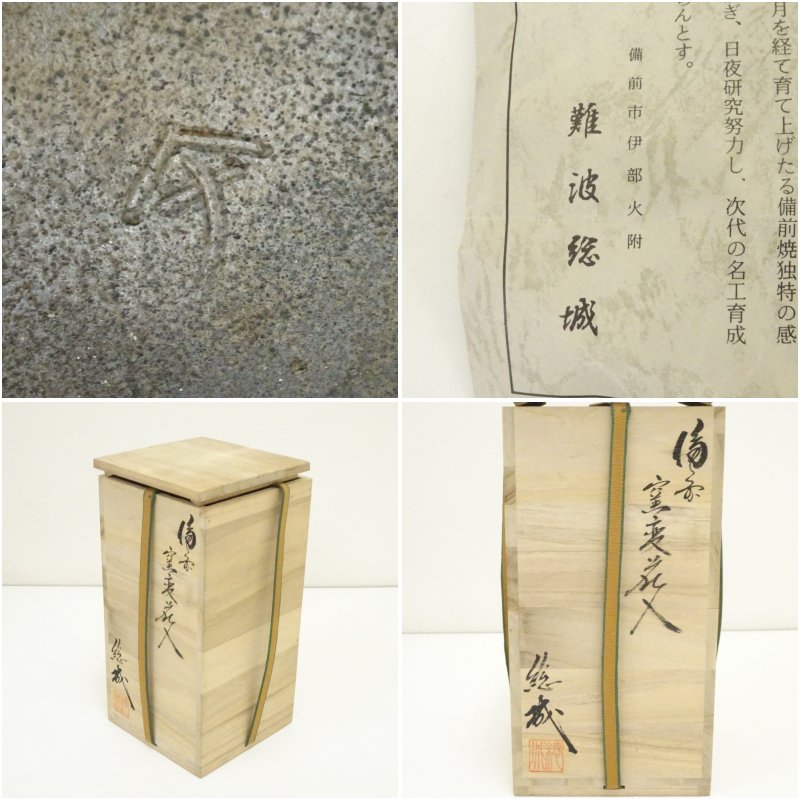 月を経て育て上げたる備前焼独特の感
ぎ、日夜研究努力し、次代の名工育成
んとす。
備前市伊部火附
難波総城
備前
窯変花入
総城
備前
窯変花入
総城